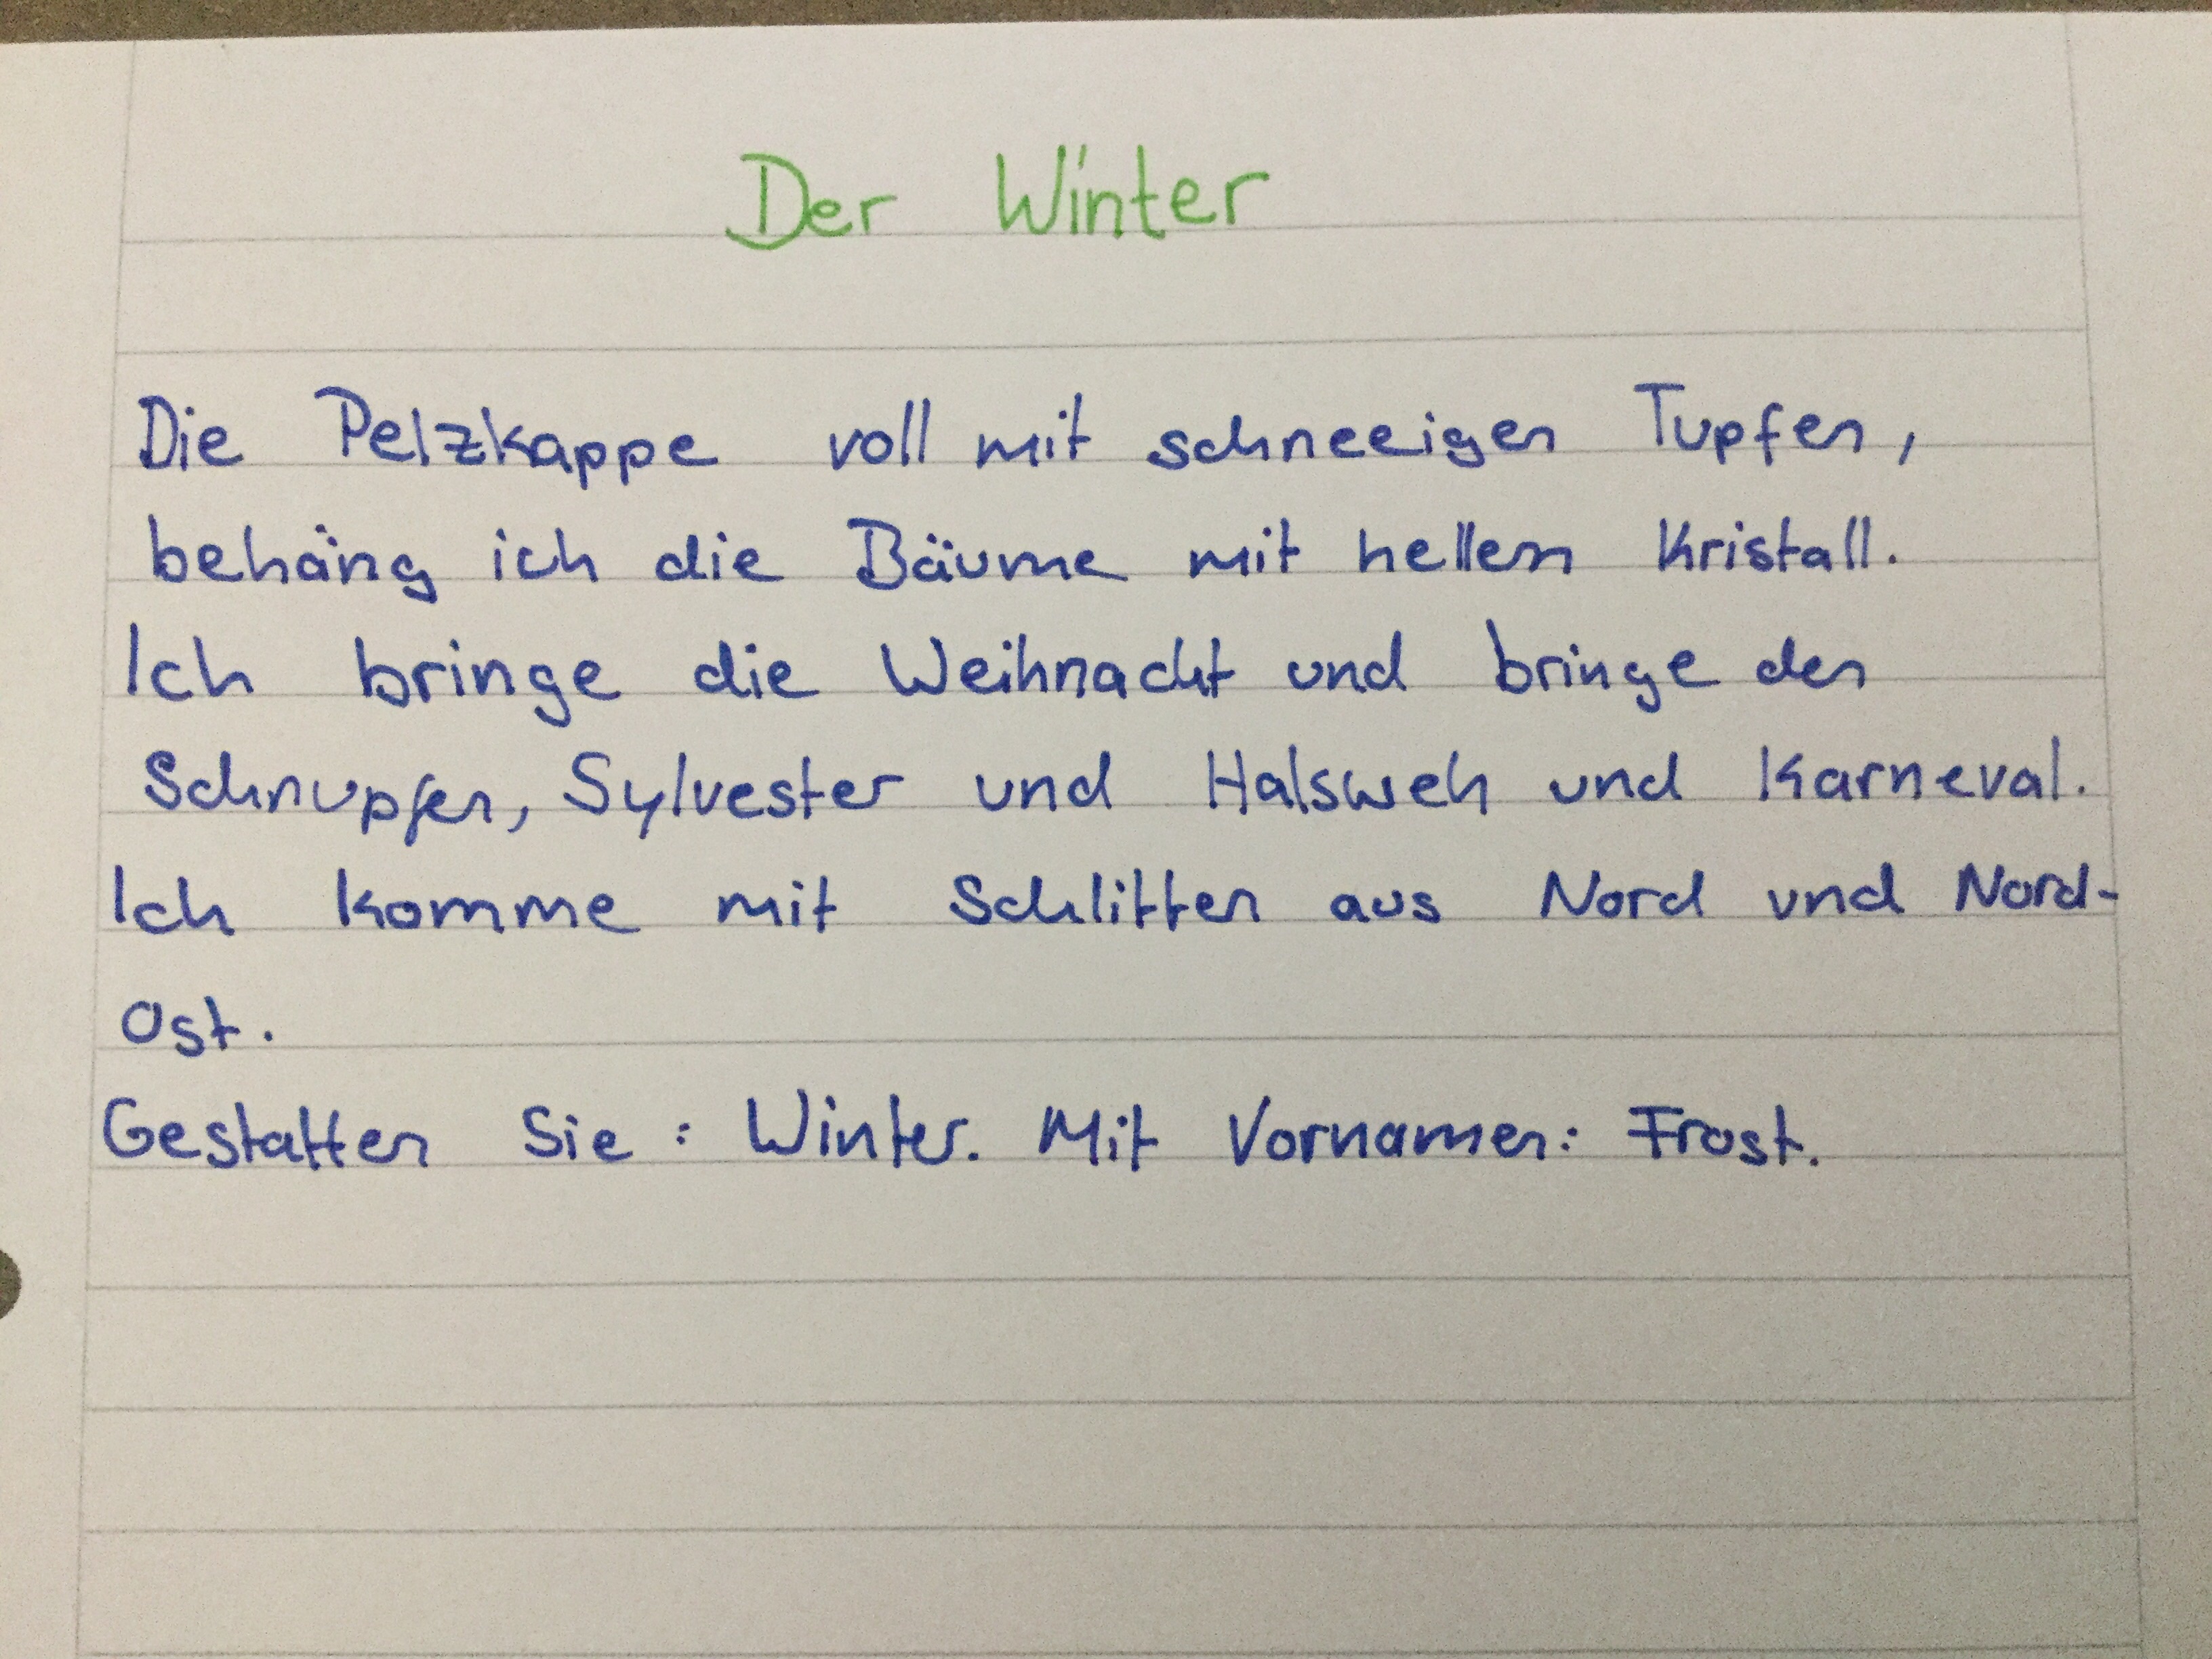 Der Winter
Die Pelzkappe voll mit schneeigen Tupfen,
behäng ich die Bäume mit hellem Kristall.
Ich bringe die Weihnacht und bringe den
Schnupfen, Sylvester und Halsweh und Karneval.
Ich komme mit Schlitten aus Nord und Nord-
Ost.
Gestatten Sie: Winter. Mit Vornamen: Frost.